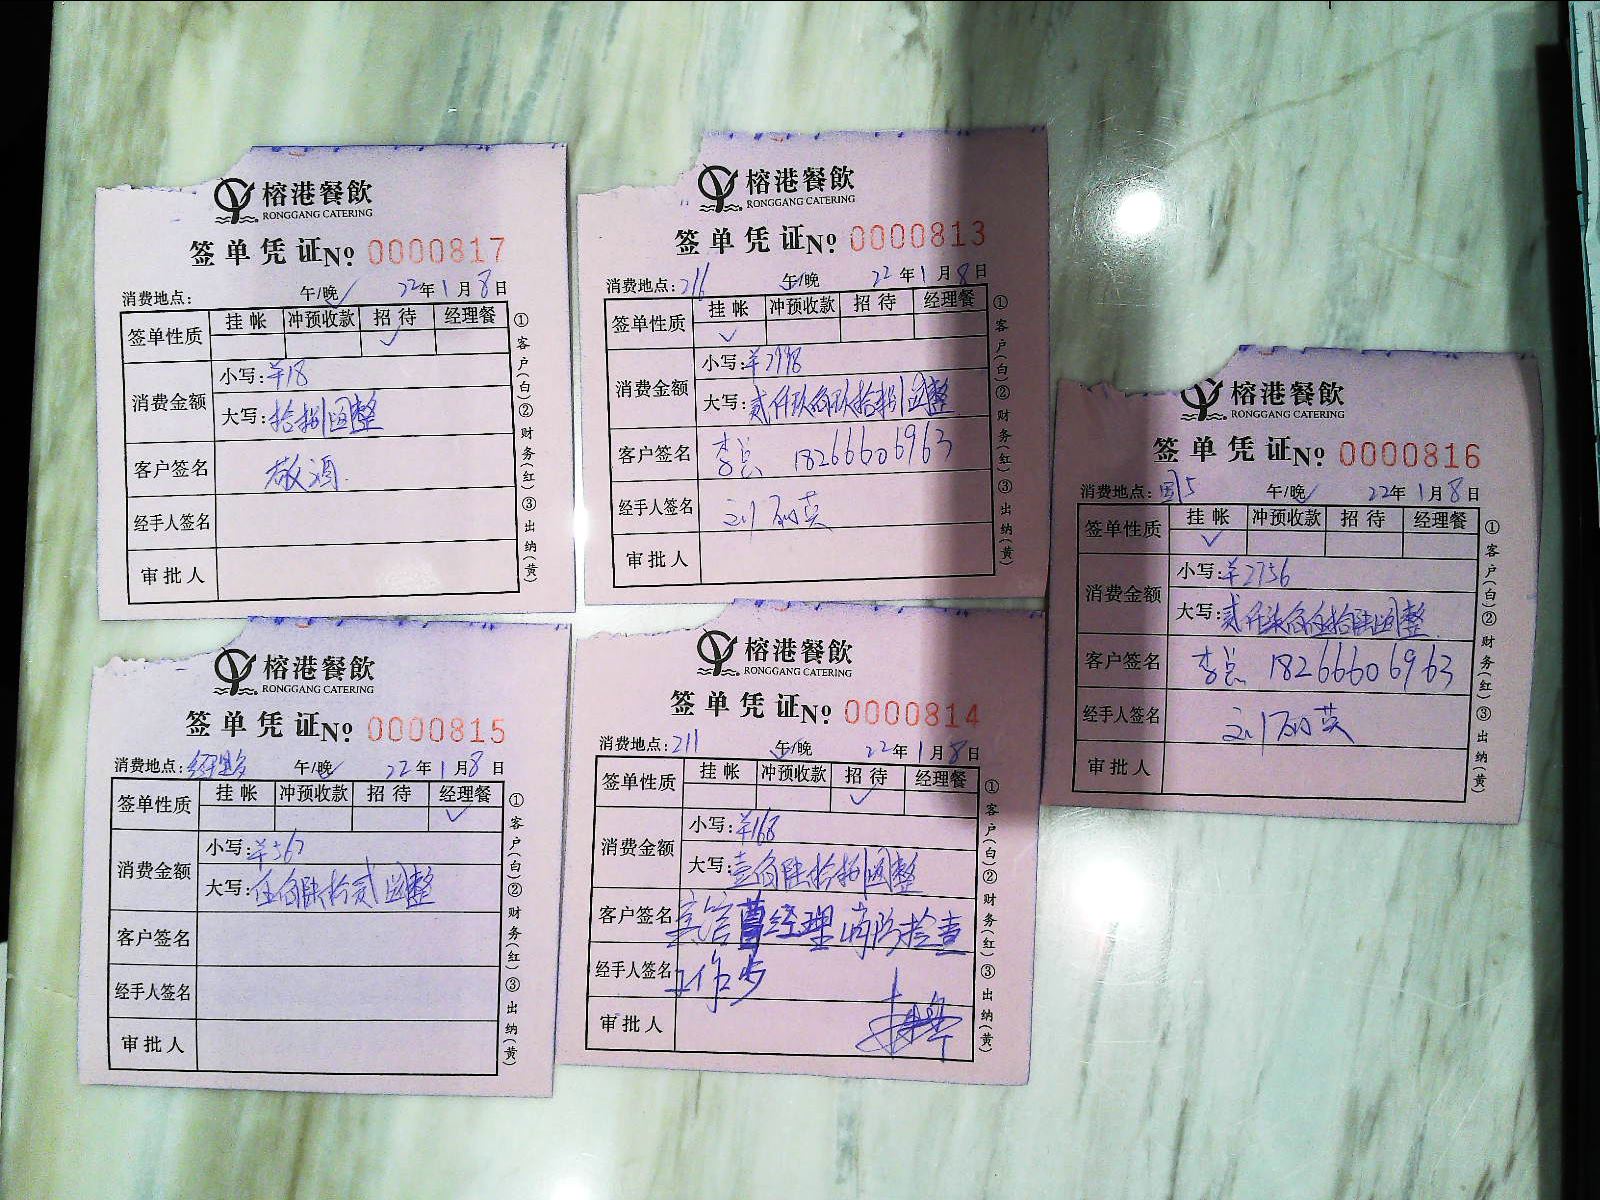 榕港餐飲
RONGGANG CATERING
签单凭证 No 0000817
消费地点: 午/晚 22年1月8日
签单性质 挂帐 冲预收款 招待 经理餐
消费金额 小写:¥18
大写:拾捌圆整
客户签名 敬酒.
经手人签名
审批人
①客户(白)②财务(红)③出纳(黄)
榕港餐飲
RONGGANG CATERING
签单凭证 No 0000813
消费地点:216 午/晚 22年1月8日
签单性质 挂帐 冲预收款 招待 经理餐
消费金额 小写:¥2998
大写:贰仟玖佰玖拾捌圆整
客户签名 李总 18266606963
经手人签名 刘丽英
审批人
①客户(白)②财务(红)③出纳(黄)
榕港餐飲
RONGGANG CATERING
签单凭证 No 0000816
消费地点: 午/晚 22年1月8日
签单性质 挂帐 冲预收款 招待 经理餐
消费金额 小写:¥2756
大写:贰仟柒佰伍拾陆圆整
客户签名 李总 18266606963
经手人签名 刘丽英
审批人
①客户(白)②财务(红)③出纳(黄)
榕港餐飲
RONGGANG CATERING
签单凭证 No 0000815
消费地点: 午/晚 22年1月8日
签单性质 挂帐 冲预收款 招待 经理餐
消费金额 小写:¥562
大写:伍佰陆拾贰圆整
客户签名
经手人签名
审批人
①客户(白)②财务(红)③出纳(黄)
榕港餐飲
RONGGANG CATERING
签单凭证 No 0000814
消费地点:211 午/晚 22年1月8日
签单性质 挂帐 冲预收款 招待 经理餐
消费金额 小写:¥168
大写:壹佰陆拾捌圆整
客户签名 主管曹经理消防检查
经手人签名 工作步
审批人
①客户(白)②财务(红)③出纳(黄)